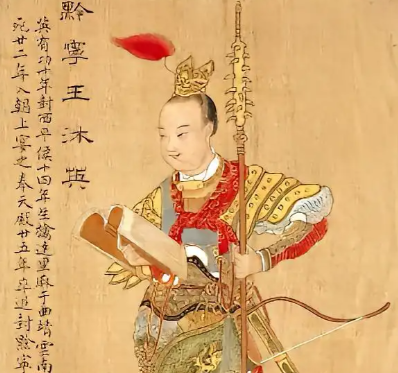 黔寧王沐英
英有功十年封西平侯十四年生擒達里麻于曲靖雲南
死廿二年入朝上宴之奉天殿廿五年卒追封黔寧